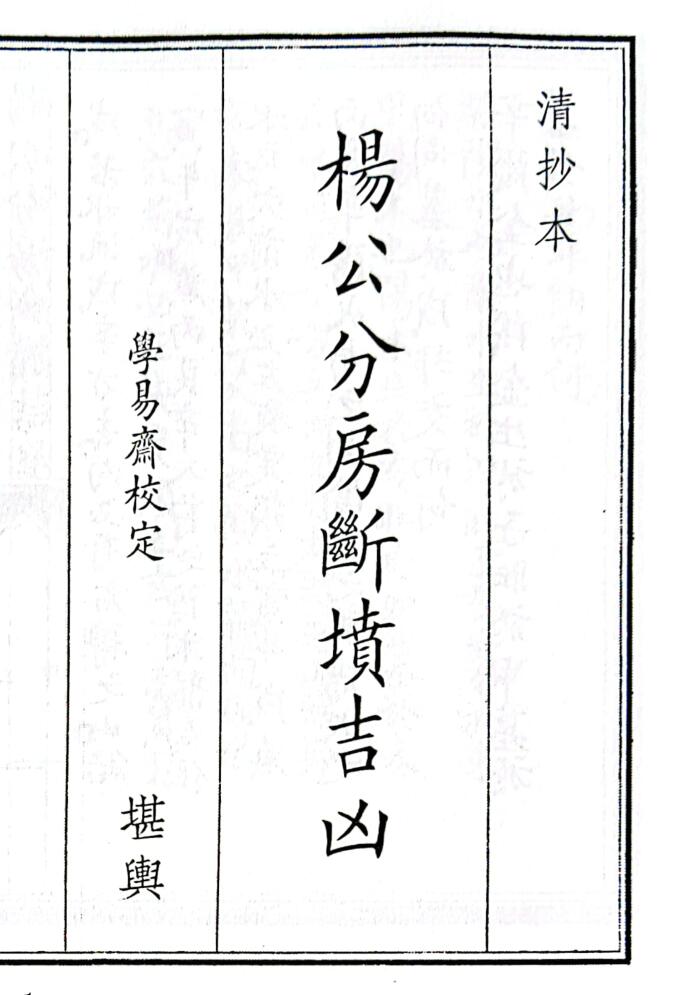 清抄本
楊公分房斷墳吉凶
學易齋校定 堪輿